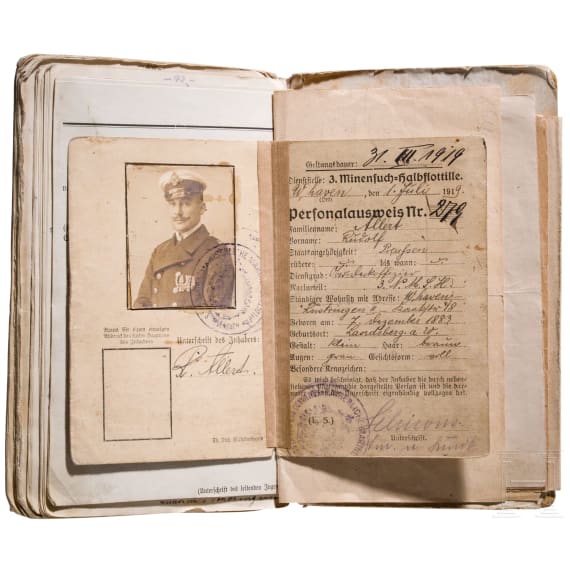 Raum für einen etwaigen
Abdruck des linken Daumens
des Inhabers
Unterschrift des Inhabers:
R. Allert.
(Unterschrift des leitenden Inge
Geltungsdauer: 31. III. 1919
Dienststelle: 3. Minensuch-Halbflottille.
W'haven, den 1. Juli 1919.
(Ort)
Personalausweis Nr. 279
Familienname: Allert
Vorname: Rudolf
Staatsangehörigkeit: Preußen
frühere: bis wann:
Dienstgrad:
Marineteil: 3. M. S. H.
Ständiger Wohnsitz mit Adresse: W'haven-
Rüstringen
Geboren am: 7. Dezember 1883
Geburtsort: Landsberg a. W.
Gestalt: klein Haar: braun
Augen: grau Gesichtsform: voll
Besondere Kennzeichen:
Es wird bescheinigt, daß der Inhaber die durch neben-
stehende Photographie dargestellte Person ist und die dar-
Unterschrift eigenhändig vollzogen hat.
(L. S.)
Unterschrift.